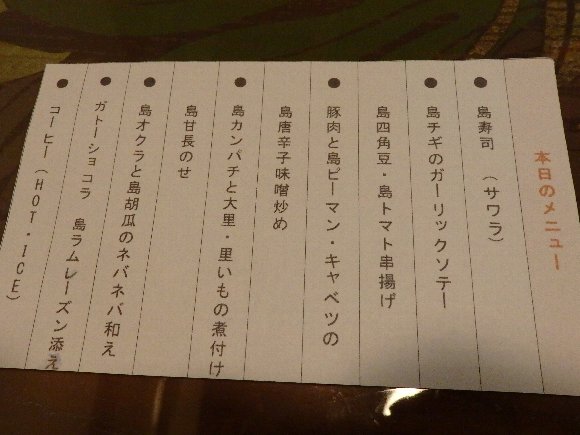 本日のメニュー
● 島寿司 （サワラ）
● 島チギのガーリックソテー
島四角豆・島トマト串揚げ
● 豚肉と島ピーマン・キャベツの
島唐辛子味噌炒め
● 島カンパチと大里・里いもの煮付け
島甘長のせ
● 島オクラと島胡瓜のネバネバ和え
● ガトーショコラ 島ラムレーズン添え
● コーヒー（HOT・ICE）